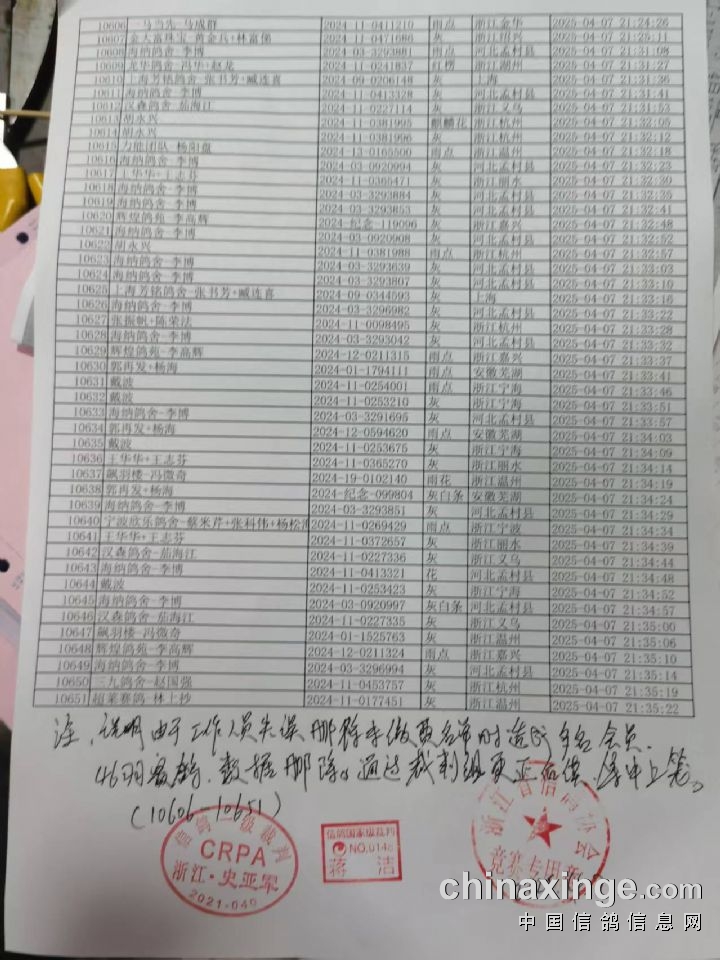 10606 一马当先-马成群 2024-11-0411210 雨点 浙江金华 2025-04-07 21:24:26
10607 金大富珠宝-黄金兵+林富俤 2024-11-0471686 灰 浙江绍兴 2025-04-07 21:25:11
10608 海纳鸽舍-李博 2024-03-3293881 雨点 河北孟村县 2025-04-07 21:31:08
10609 龙华鸽舍-冯华+赵龙 2024-11-0241837 红楞 浙江湖州 2025-04-07 21:31:27
10610 上海芳铭鸽舍-张书芳+臧连喜 2024-09-0206148 灰 上海 2025-04-07 21:31:36
10611 海纳鸽舍-李博 2024-11-0413328 灰 河北孟村县 2025-04-07 21:31:41
10612 汉森鸽舍-茄海江 2024-11-0227114 灰 浙江义乌 2025-04-07 21:31:53
10613 胡永兴 2024-11-0381995 麒麟花 浙江杭州 2025-04-07 21:32:05
10614 胡永兴 2024-11-0381996 灰 浙江杭州 2025-04-07 21:32:12
10615 万能团队-杨阳盘 2024-13-0165500 雨点 浙江温州 2025-04-07 21:32:18
10616 海纳鸽舍-李博 2024-03-0920994 灰 河北孟村县 2025-04-07 21:32:23
10617 王华华+王志芬 2024-11-0365471 灰 浙江丽水 2025-04-07 21:32:30
10618 海纳鸽舍-李博 2024-03-3293884 灰 河北孟村县 2025-04-07 21:32:35
10619 海纳鸽舍-李博 2024-03-3293853 灰 河北孟村县 2025-04-07 21:32:41
10620 辉煌鸽苑-李高辉 2024-纪念-119096 灰 浙江嘉兴 2025-04-07 21:32:48
10621 海纳鸽舍-李博 2024-03-0920908 灰 河北孟村县 2025-04-07 21:32:52
10622 胡永兴 2024-11-0381988 雨点 浙江杭州 2025-04-07 21:32:57
10623 海纳鸽舍-李博 2024-03-3293639 灰 河北孟村县 2025-04-07 21:33:03
10624 海纳鸽舍-李博 2024-03-3293807 灰 河北孟村县 2025-04-07 21:33:10
10625 上海芳铭鸽舍-张书芳+臧连喜 2024-09-0344593 灰 上海 2025-04-07 21:33:16
10626 海纳鸽舍-李博 2024-03-3296982 灰 河北孟村县 2025-04-07 21:33:22
10627 张振帆+陈荣法 2024-11-0098495 灰 浙江杭州 2025-04-07 21:33:28
10628 海纳鸽舍-李博 2024-03-3293042 灰 河北孟村县 2025-04-07 21:33:32
10629 辉煌鸽苑-李高辉 2024-12-0211315 雨点 浙江嘉兴 2025-04-07 21:33:37
10630 郭再发+杨海 2024-01-1794111 雨点 安徽芜湖 2025-04-07 21:33:41
10631 戴波 2024-11-0254001 雨点 浙江宁海 2025-04-07 21:33:46
10632 戴波 2024-11-0253210 灰 浙江宁海 2025-04-07 21:33:51
10633 海纳鸽舍-李博 2024-03-3291695 灰 河北孟村县 2025-04-07 21:33:57
10634 郭再发+杨海 2024-12-0594620 雨点 安徽芜湖 2025-04-07 21:34:03
10635 戴波 2024-11-0253675 灰 浙江宁海 2025-04-07 21:34:09
10636 王华华+王志芬 2024-11-0365270 灰 浙江丽水 2025-04-07 21:34:14
10637 飙羽楼-冯微奇 2024-19-0102140 雨花 浙江温州 2025-04-07 21:34:19
10638 郭再发+杨海 2024-纪念-099804 灰白条 安徽芜湖 2025-04-07 21:34:24
10639 海纳鸽舍-李博 2024-03-3293851 灰 河北孟村县 2025-04-07 21:34:29
10640 宁波欣乐鸽舍-蔡米芹+张科伟+杨松 2024-11-0269429 雨点 浙江宁波 2025-04-07 21:34:34
10641 王华华+王志芬 2024-11-0372657 灰 浙江丽水 2025-04-07 21:34:39
10642 汉森鸽舍-茄海江 2024-11-0227336 灰 浙江义乌 2025-04-07 21:34:44
10643 海纳鸽舍-李博 2024-11-0413321 花 河北孟村县 2025-04-07 21:34:48
10644 戴波 2024-11-0253423 灰 浙江宁海 2025-04-07 21:34:52
10645 海纳鸽舍-李博 2024-03-0920997 灰白条 河北孟村县 2025-04-07 21:34:57
10646 汉森鸽舍-茄海江 2024-11-0227335 灰 浙江义乌 2025-04-07 21:35:00
10647 飙羽楼-冯微奇 2024-01-1525763 灰 浙江温州 2025-04-07 21:35:06
10648 辉煌鸽苑-李高辉 2024-12-0211324 雨点 浙江嘉兴 2025-04-07 21:35:10
10649 海纳鸽舍-李博 2024-03-3296994 灰 河北孟村县 2025-04-07 21:35:14
10650 三九鸽舍-赵国强 2024-11-0453757 灰 浙江杭州 2025-04-07 21:35:19
10651 超莱赛鸽-林上抄 2024-11-0177451 灰 浙江温州 2025-04-07 21:35:22
注、说明由于工作人员失误删除未缴费名单时造成 会员
46羽赛鸽 数据删除。通过裁判组更正
(10606-10651)
信鸽一级裁判
CRPA
浙江·史亚军
2021-049
信鸽国家级裁判
NO.0146
蒋洁
浙江省信鸽协会
竞赛专用章
chinaxinge.com
中国信鸽信息网